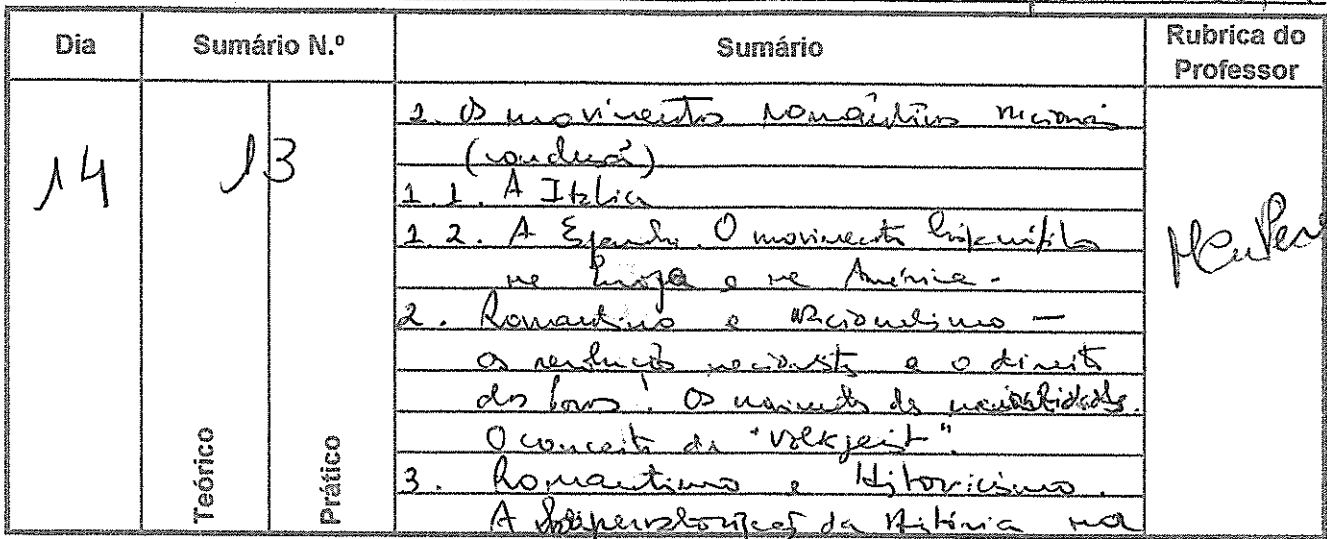 Dia Sumário N.º Sumário Rubrica do Professor
14 13
1. Os movimentos românticos nacionais
(conclusão)
1.1. A Itália
1.2. A Espanha. O movimento
na Europa e na América.
2. Romantismo e Nacionalismo —
as revoluções nacionalistas e o direito
dos povos. Os movimentos das nacionalidades.
O conceito de "Volkgeist".
3. Romantismo e Historicismo.
A da História na
Teórico Prático